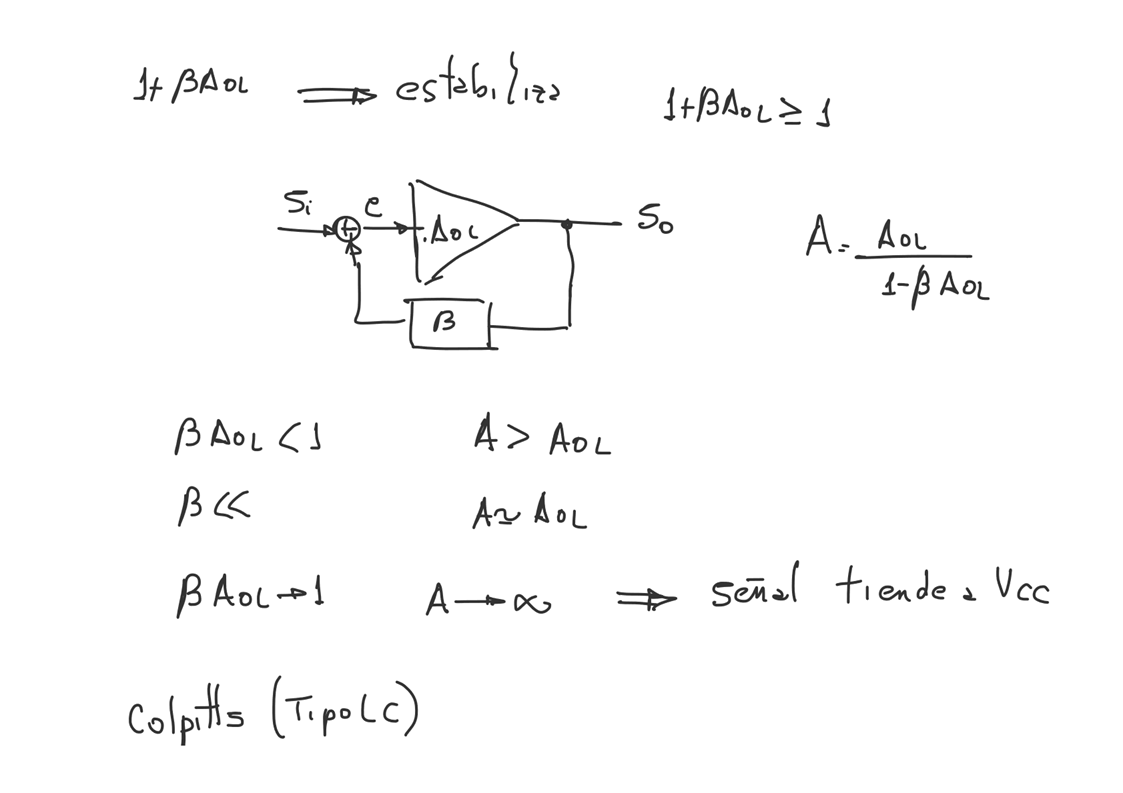 1+ βAOL ⟹ estabiliza
1+βAOL ≥ 1
Si + e AOL So
β
A = AOL / 1-β AOL
β AOL < 1 A > AOL
β << A ≃ AOL
β AOL → 1 A → ∞ ⟹ señal tiende a Vcc
Colpitts (Tipo LC)